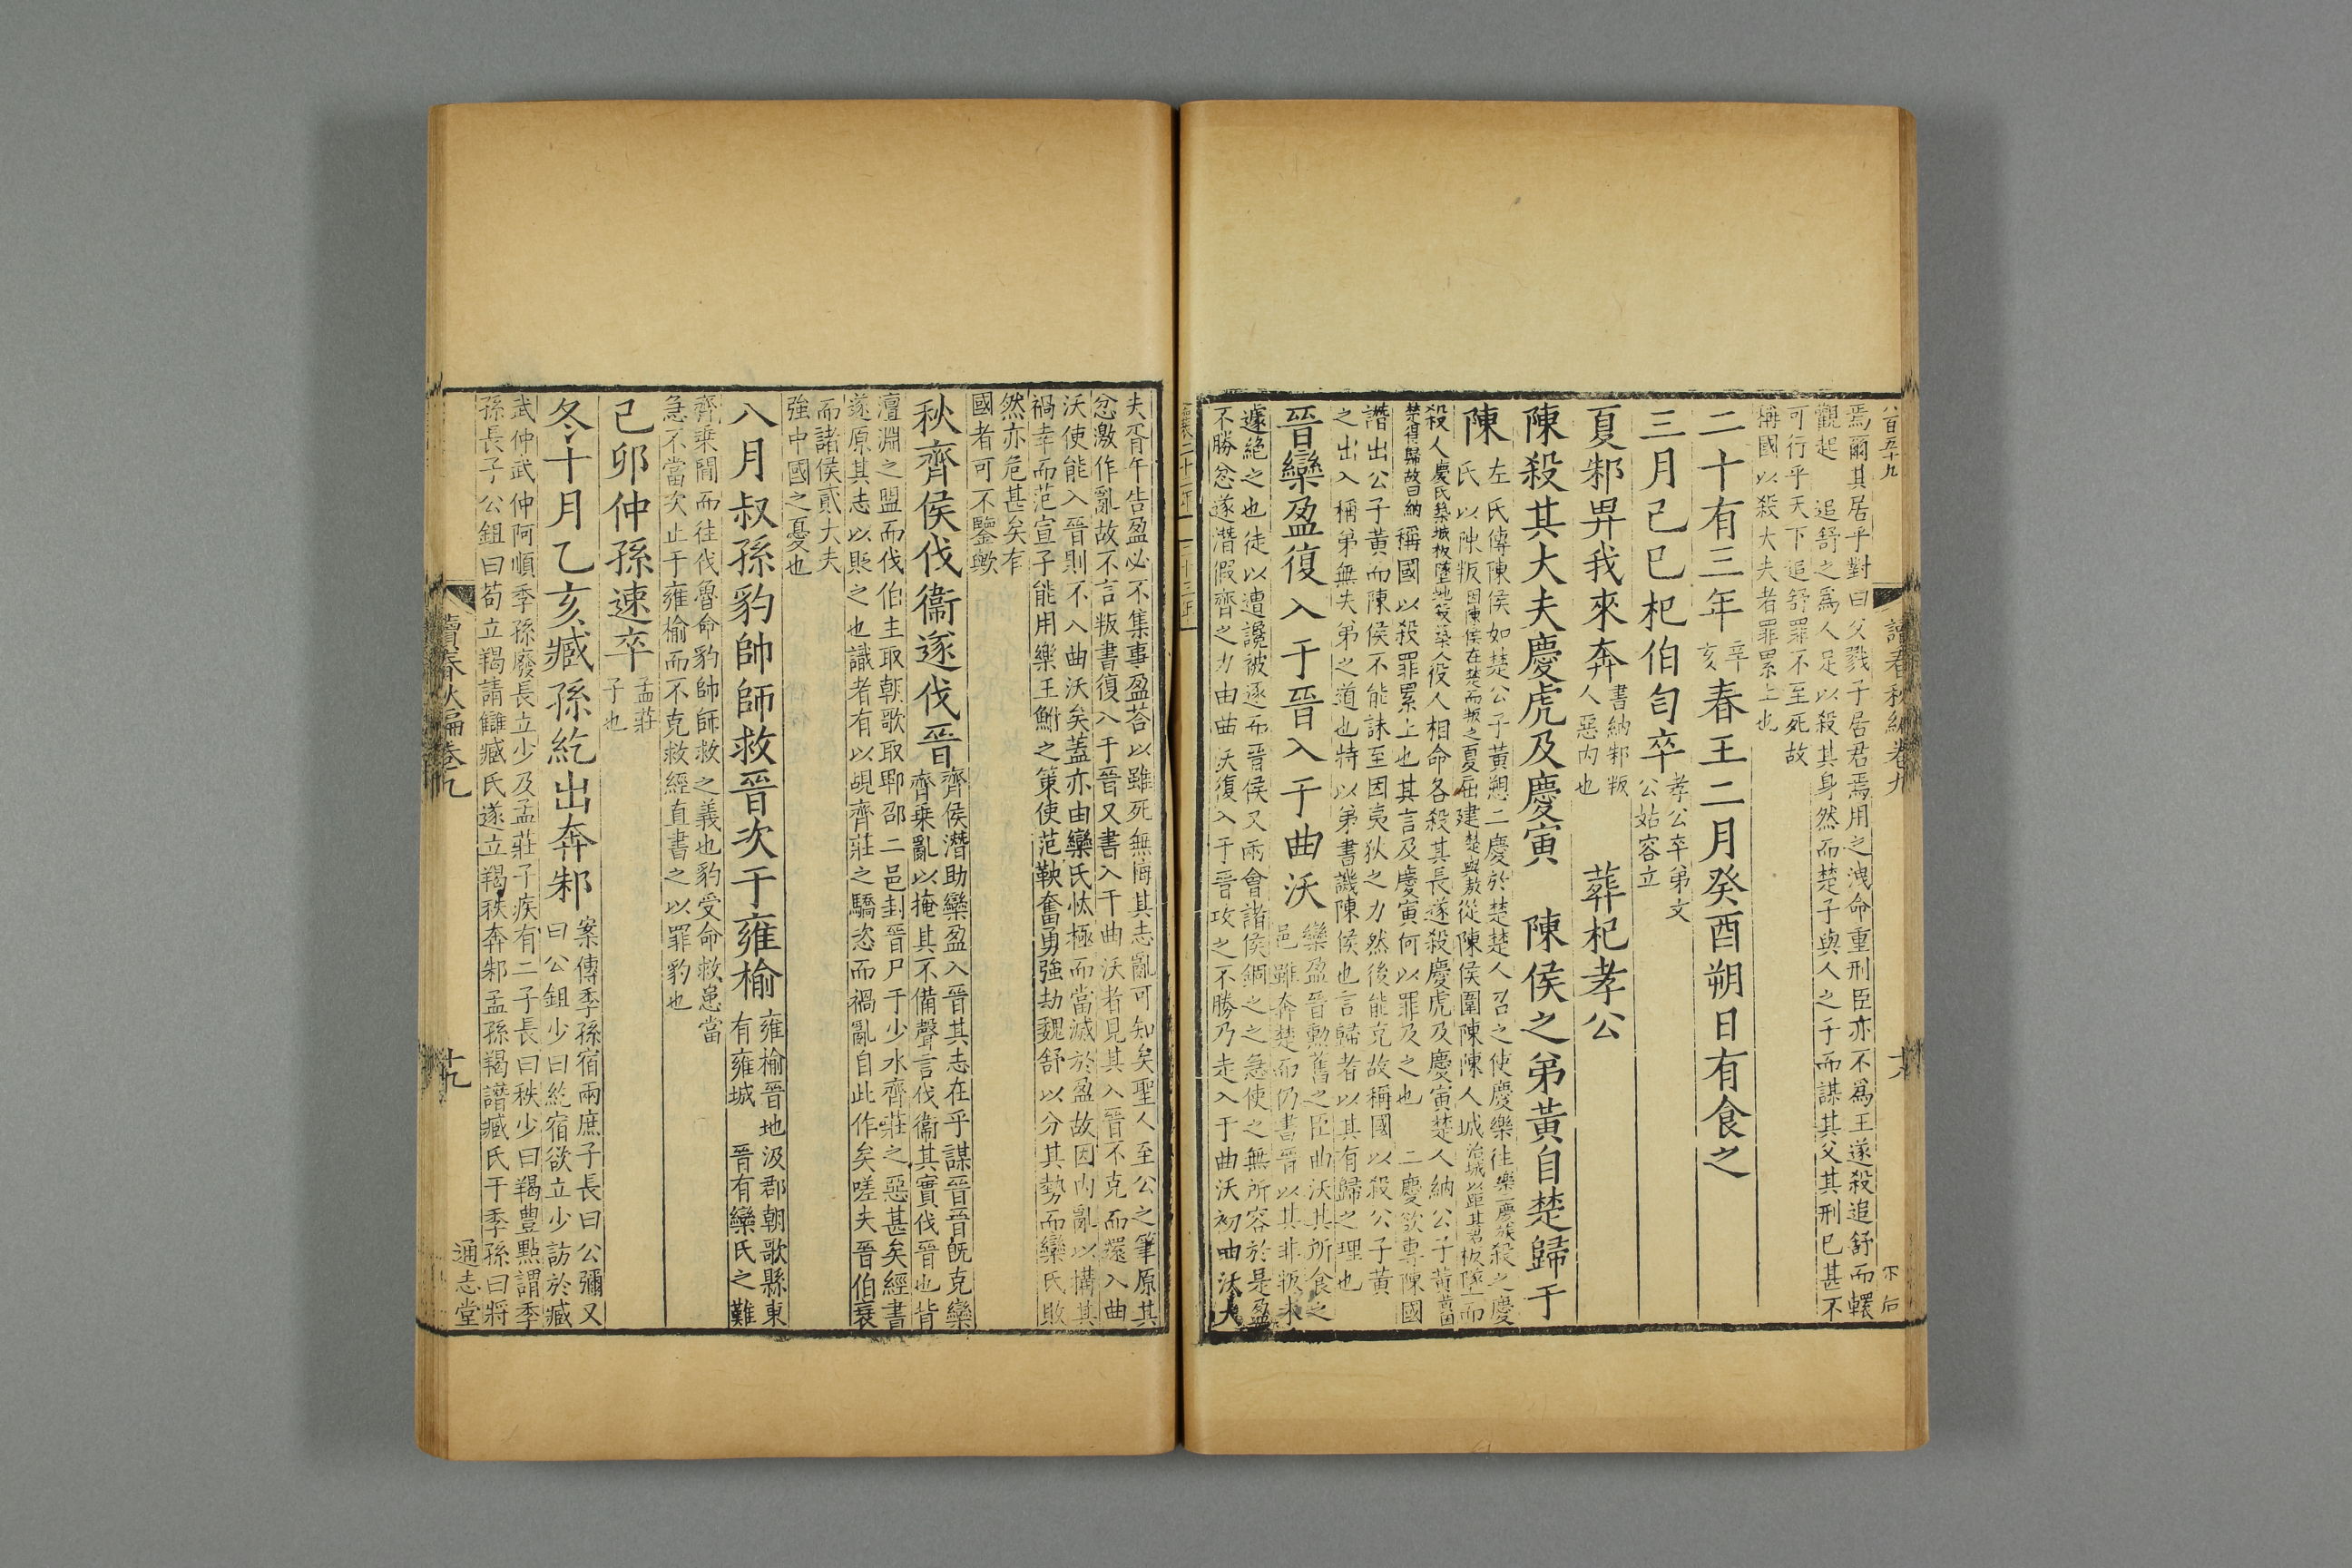 八百五十九
讀春秋編卷九
十八
焉爾其居乎對曰父戮子居君焉用之洩命重刑臣亦不爲王遂殺追舒而轘
觀起　追舒之爲人足以殺其身然而楚子與人之子而謀其父其刑已甚不
可行乎天下追舒罪不至死故
稱國以殺大夫者罪累上也
二十有三年辛亥春王二月癸酉朔日有食之
三月己巳杞伯匄卒孝公卒弟文公姑容立
夏邾畀我來奔書納邾叛人惡内也　葬杞孝公
陳殺其大夫慶虎及慶寅　陳侯之弟黃自楚歸于
陳
左氏傳陳侯如楚公子黃愬二慶於楚楚人召之使慶樂往樂二慶族殺之慶
氏以陳叛因陳侯在楚而叛之夏屈建楚莫敖從陳侯圍陳陳人城治城以距其君板墜而
殺人慶氏築城板墜地殺築人役人相命各殺其長遂殺慶虎及慶寅楚人納公子黃黃因
楚得歸故曰納　稱國以殺罪累上也其言及慶寅何以罪及之也　二慶欲專陳國
譖出公子黃而陳侯不能誅至因夷狄之力然後能克故稱國以殺公子黃
之出入稱弟無失弟之道也特以弟書譏陳侯也言歸者以其有歸之理也
晉欒盈復入于晉入于曲沃
欒盈晉勲舊之臣曲沃其所食之
邑雖奔楚而仍書晉以其非叛求
遽絶之也徒以遭讒被逐而晉侯又兩會諸侯錮之之急使之無所容於是盈
不勝忿遂潛假齊之力由曲沃復入于晉攻之不勝乃走入于曲沃初曲沃大
襄二十二年　二十三年
夫胥午告盈必不集事盈荅以雖死無悔其志亂可知矣聖人至公之筆原其
忿激作亂故不言叛書復入于晉又書入于曲沃者見其入晉不克而還入曲
沃使能入晉則不入曲沃矣蓋亦由欒氏怙極而當滅於盈故因内亂以搆其
禍幸而范宣子能用樂王鮒之策使范鞅奮勇強劫魏舒以分其勢而欒氏敗
然亦危甚矣有
國者可不鑒歟
秋齊侯伐衞遂伐晉
齊侯潛助欒盈入晉其志在乎謀晉晉旣克欒
齊乘亂以掩其不備聲言伐衞其實伐晉也背
澶淵之盟而伐伯主取朝歌取郫邵二邑封晉尸于少水齊莊之惡甚矣經書
遂原其志以貶之也識者有以覘齊莊之驕恣而禍亂自此作矣嗟夫晉伯衰
而諸侯貳大夫
強中國之憂也
八月叔孫豹帥師救晉次于雍榆
雍榆晉地汲郡朝歌縣東
有雍城　晉有欒氏之難
齊乘閒而往伐魯命豹帥師救之義也豹受命救患當
急不當次止于雍榆而不克救經直書之以罪豹也
己卯仲孫速卒孟莊子也
冬十月乙亥臧孫紇出奔邾
案傳季孫宿兩庶子長曰公彌又
曰公鉏少曰紇宿欲立少訪於臧
武仲武仲阿順季孫廢長立少及孟莊子疾有二子長曰秩少曰羯豐點謂季
孫長子公鉏曰苟立羯請讎臧氏遂立羯秩奔邾孟孫羯譖臧氏于季孫曰將
讀春秋編卷九
十九
通志堂